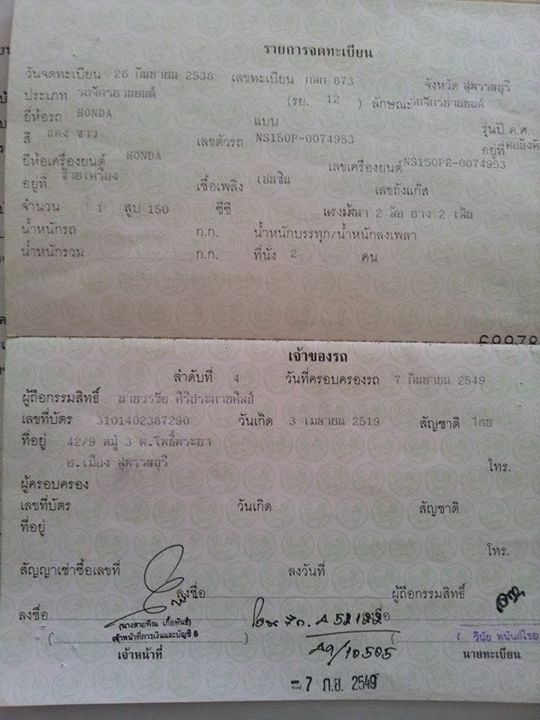 รายการจดทะเบียน
วันจดทะเบียน 26 กันยายน 2536 เลขทะเบียน 673 จังหวัด สุพรรณบุรี
ประเภท รถจักรยานยนต์ (รย. 12 ) ลักษณะ รถจักรยานยนต์
ยี่ห้อรถ HONDA แบบ รุ่นปี ค.ศ.
สี แดง ขาว เลขตัวรถ NS150P-0074953 อยู่ที่ คอบังคับ
ยี่ห้อเครื่องยนต์ HONDA เลขเครื่องยนต์ NS150PE-0074953
อยู่ที่ ซ้ายเครื่อง เชื้อเพลิง เบนซิน เลขถังแก๊ส
จำนวน 1 สูบ 150 ซีซี แรงม้า 2 ล้อ ยาง 2 เส้น
น้ำหนักรถ ก.ก. น้ำหนักบรรทุก/น้ำหนักลงเพลา
น้ำหนักรวม ก.ก. ที่นั่ง 2 คน
เจ้าของรถ
ลำดับที่ 4 วันที่ครอบครองรถ 7 กันยายน 2549
ผู้ถือกรรมสิทธิ์
เลขที่บัตร 3101402387290 วันเกิด 3 เมษายน 2519 สัญชาติ ไทย
ที่อยู่ 42/9 หมู่ 3 ต.โพธิ์พระยา
อ.เมือง สุพรรณบุรี โทร.
ผู้ครอบครอง
เลขที่บัตร วันเกิด สัญชาติ
ที่อยู่
โทร.
สัญญาเช่าซื้อเลขที่ ลงวันที่ ผู้ถือกรรมสิทธิ์
ลงชื่อ
ลงชื่อ
เจ้าหน้าที่การเงินและบัญชี 5
เจ้าหน้าที่ 49/10505 นายทะเบียน
= 7 ก.ย. 2549